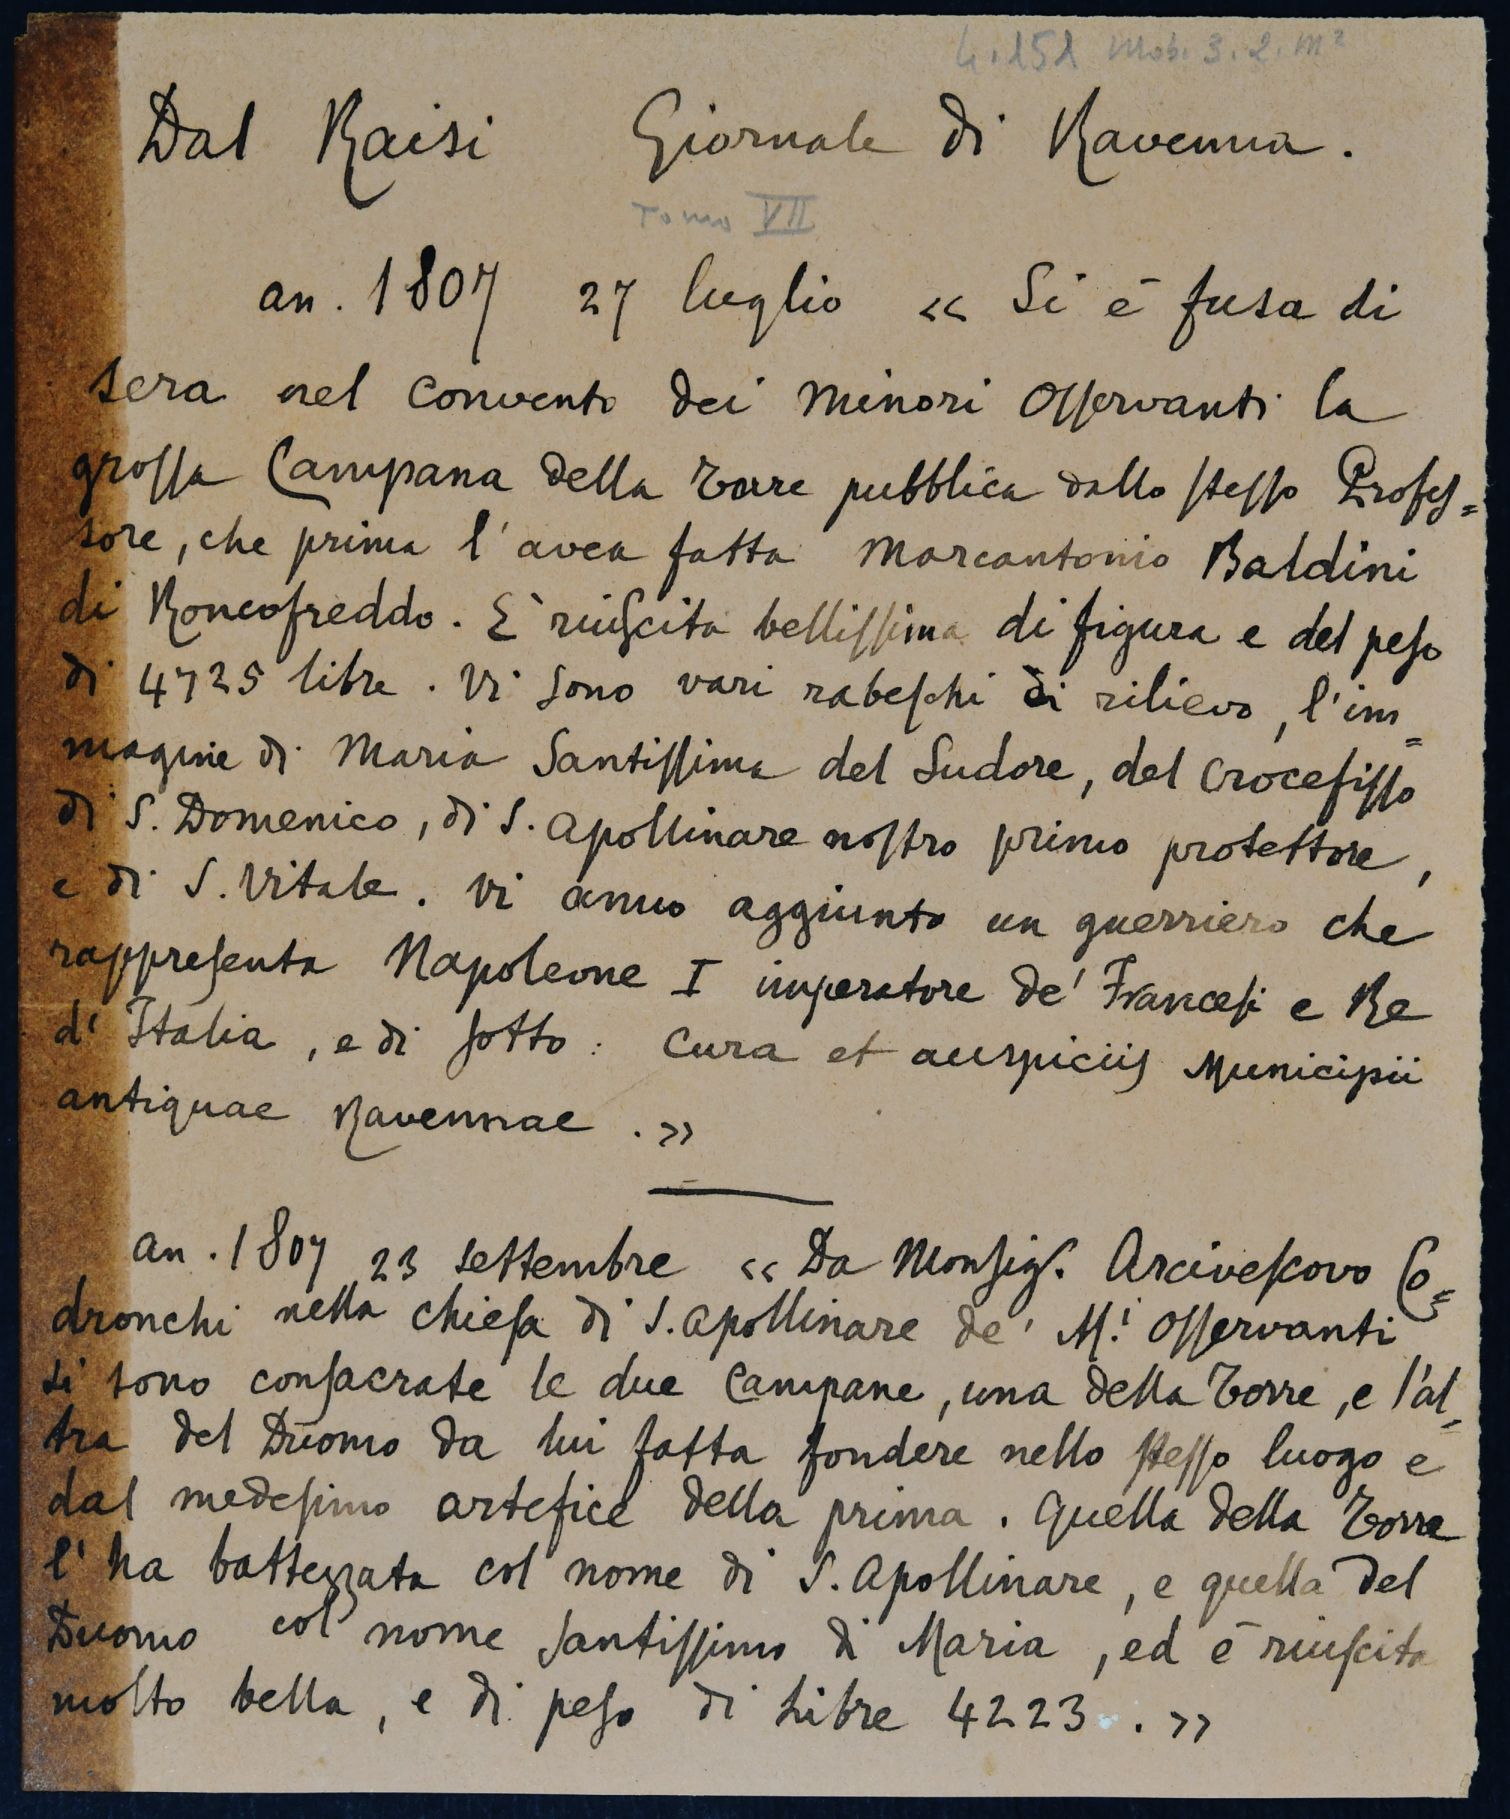 4.151 Mob. 3.2. M²
Dal Raisi Giornale di Ravenna.
Tomo VII
an. 1807 27 luglio « Si è fusa di
sera nel convento dei Minori Osservanti la
grossa Campana della Torre pubblica dallo stesso Profes=
sore, che prima l'avea fatta Marcantonio Baldini
di Roncofreddo. E' riuscita bellissima di figura e del peso
di 4725 libre. Vi sono vari rabeschi di rilievo, l'im=
magine di Maria Santissima del Sudore, del Crocefisso
di S. Domenico, di S. Apollinare nostro primo protettore,
e di S. Vitale. Vi anno aggiunto un guerriero che
rappresenta Napoleone I imperatore de' Francesi e Re
d'Italia, e di sotto: Cura et auspiciis Municipii
antiquae Ravennae.»
an. 1807 23 settembre « Da Monsig.r Arcivescovo Co=
dronchi nella chiesa di S. Apollinare de' M.i Osservanti
si sono consacrate le due Campane, una della Torre, e l'al=
tra del Duomo da lui fatta fondere nello stesso luogo e
dal medesimo artefice della prima. Quella della Torre
l'ha battezzata col nome di S. Apollinare, e quella del
Duomo col nome santissimo di Maria, ed è riuscita
molto bella, e di peso di Libre 4223.»